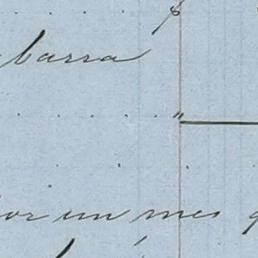 barra
"
por un mes